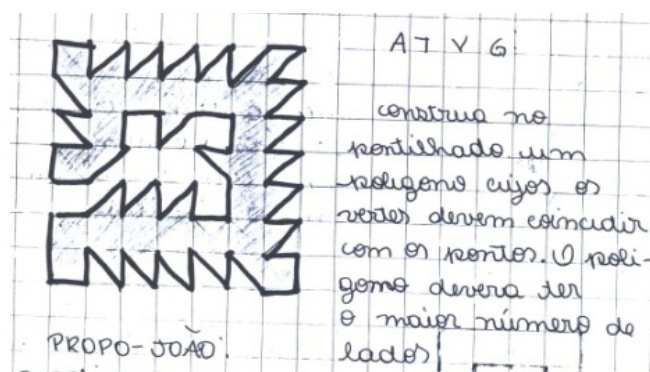 A T V G
construa no
pontilhado um
poligono cujos os
vertes devem coincidir
com os pontos. O poli-
gono devera ter
o maior número de
lados
PROPO-JOÃO